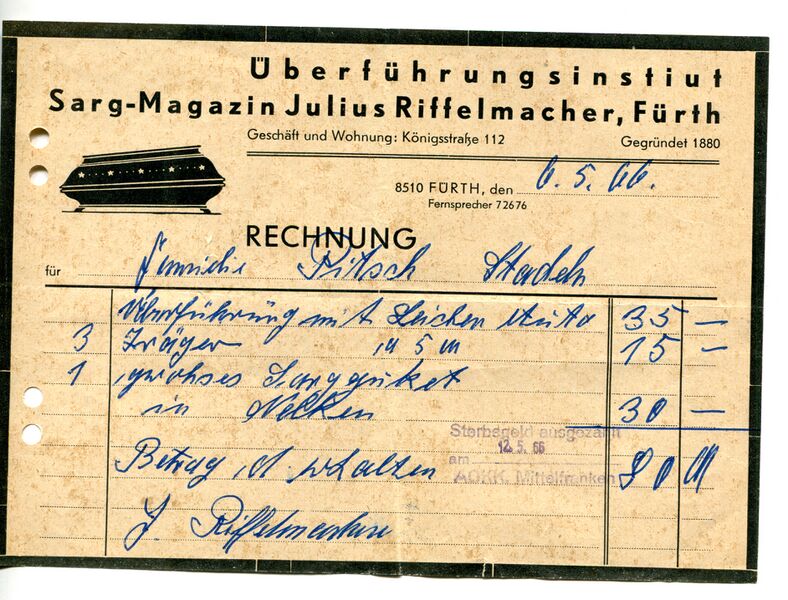 Überführungsinstiut
Sarg-Magazin Julius Riffelmacher, Fürth
Geschäft und Wohnung: Königsstraße 112
Gegründet 1880
8510 FÜRTH, den 6. 5. 66.
Fernsprecher 72676
RECHNUNG
für Familie Pitsch Stadeln
Überführung mit Leichen Auto 35 –
3 Träger a 5 M 15 –
1 großes Sargbuket
in Nelken 30 –
Sterbegeld ausgezahlt
12. 5. 66
am
AOKK Mittelfranken
Betrag erhalten 80 M
J. Riffelmacher